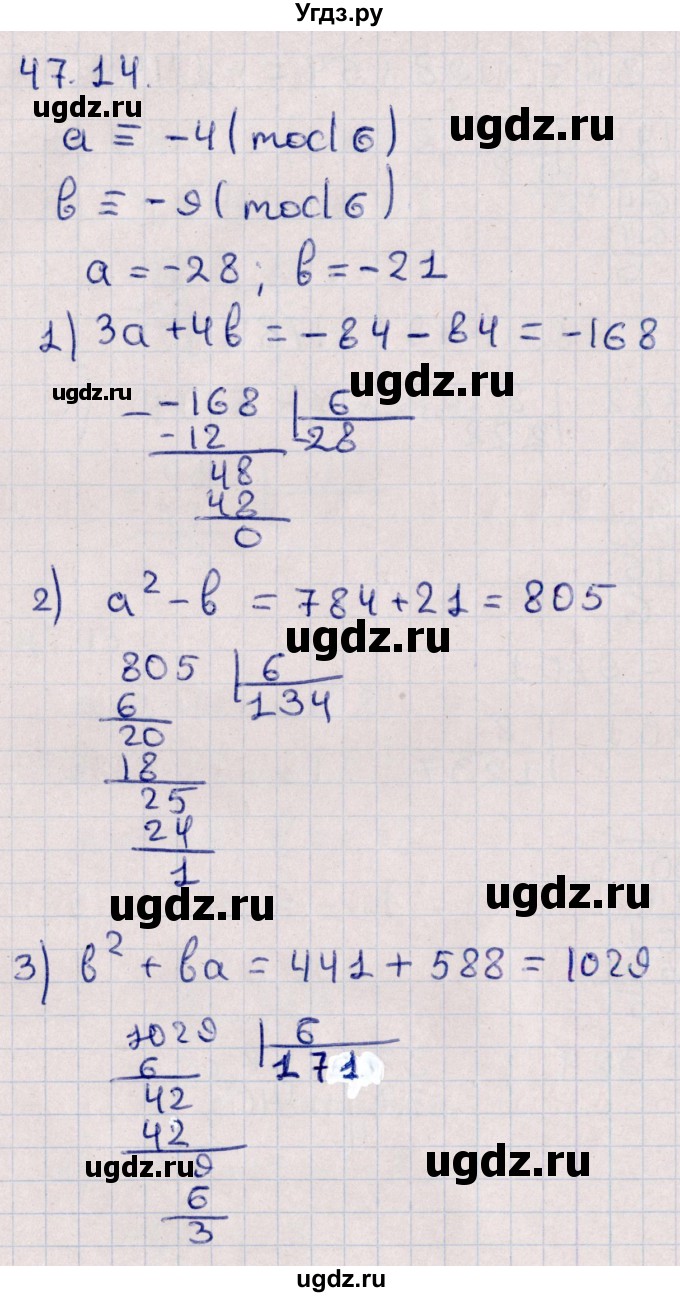 Угдз.ру
47.14.
ugdz.ru
ugdz.ru
a ≡ -4 (mod 6)
в ≡ -9 (mod 6)
a = -28; в = -21
1) 3a + 4в = -84 - 84 = -168
ugdz.ru
ugdz.ru
- -168 | 6
-12 -28
48
48
0
2) a² - в = 784 + 21 = 805
ugdz.ru
805 | 6
6 134
20
18
25
24
1
ugdz.ru
ugdz.ru
3) в² + вa = 441 + 588 = 1029
1029 | 6
6 171
42
42
ugdz.ru
ugdz.ru
9
6
3
ugdz.ru